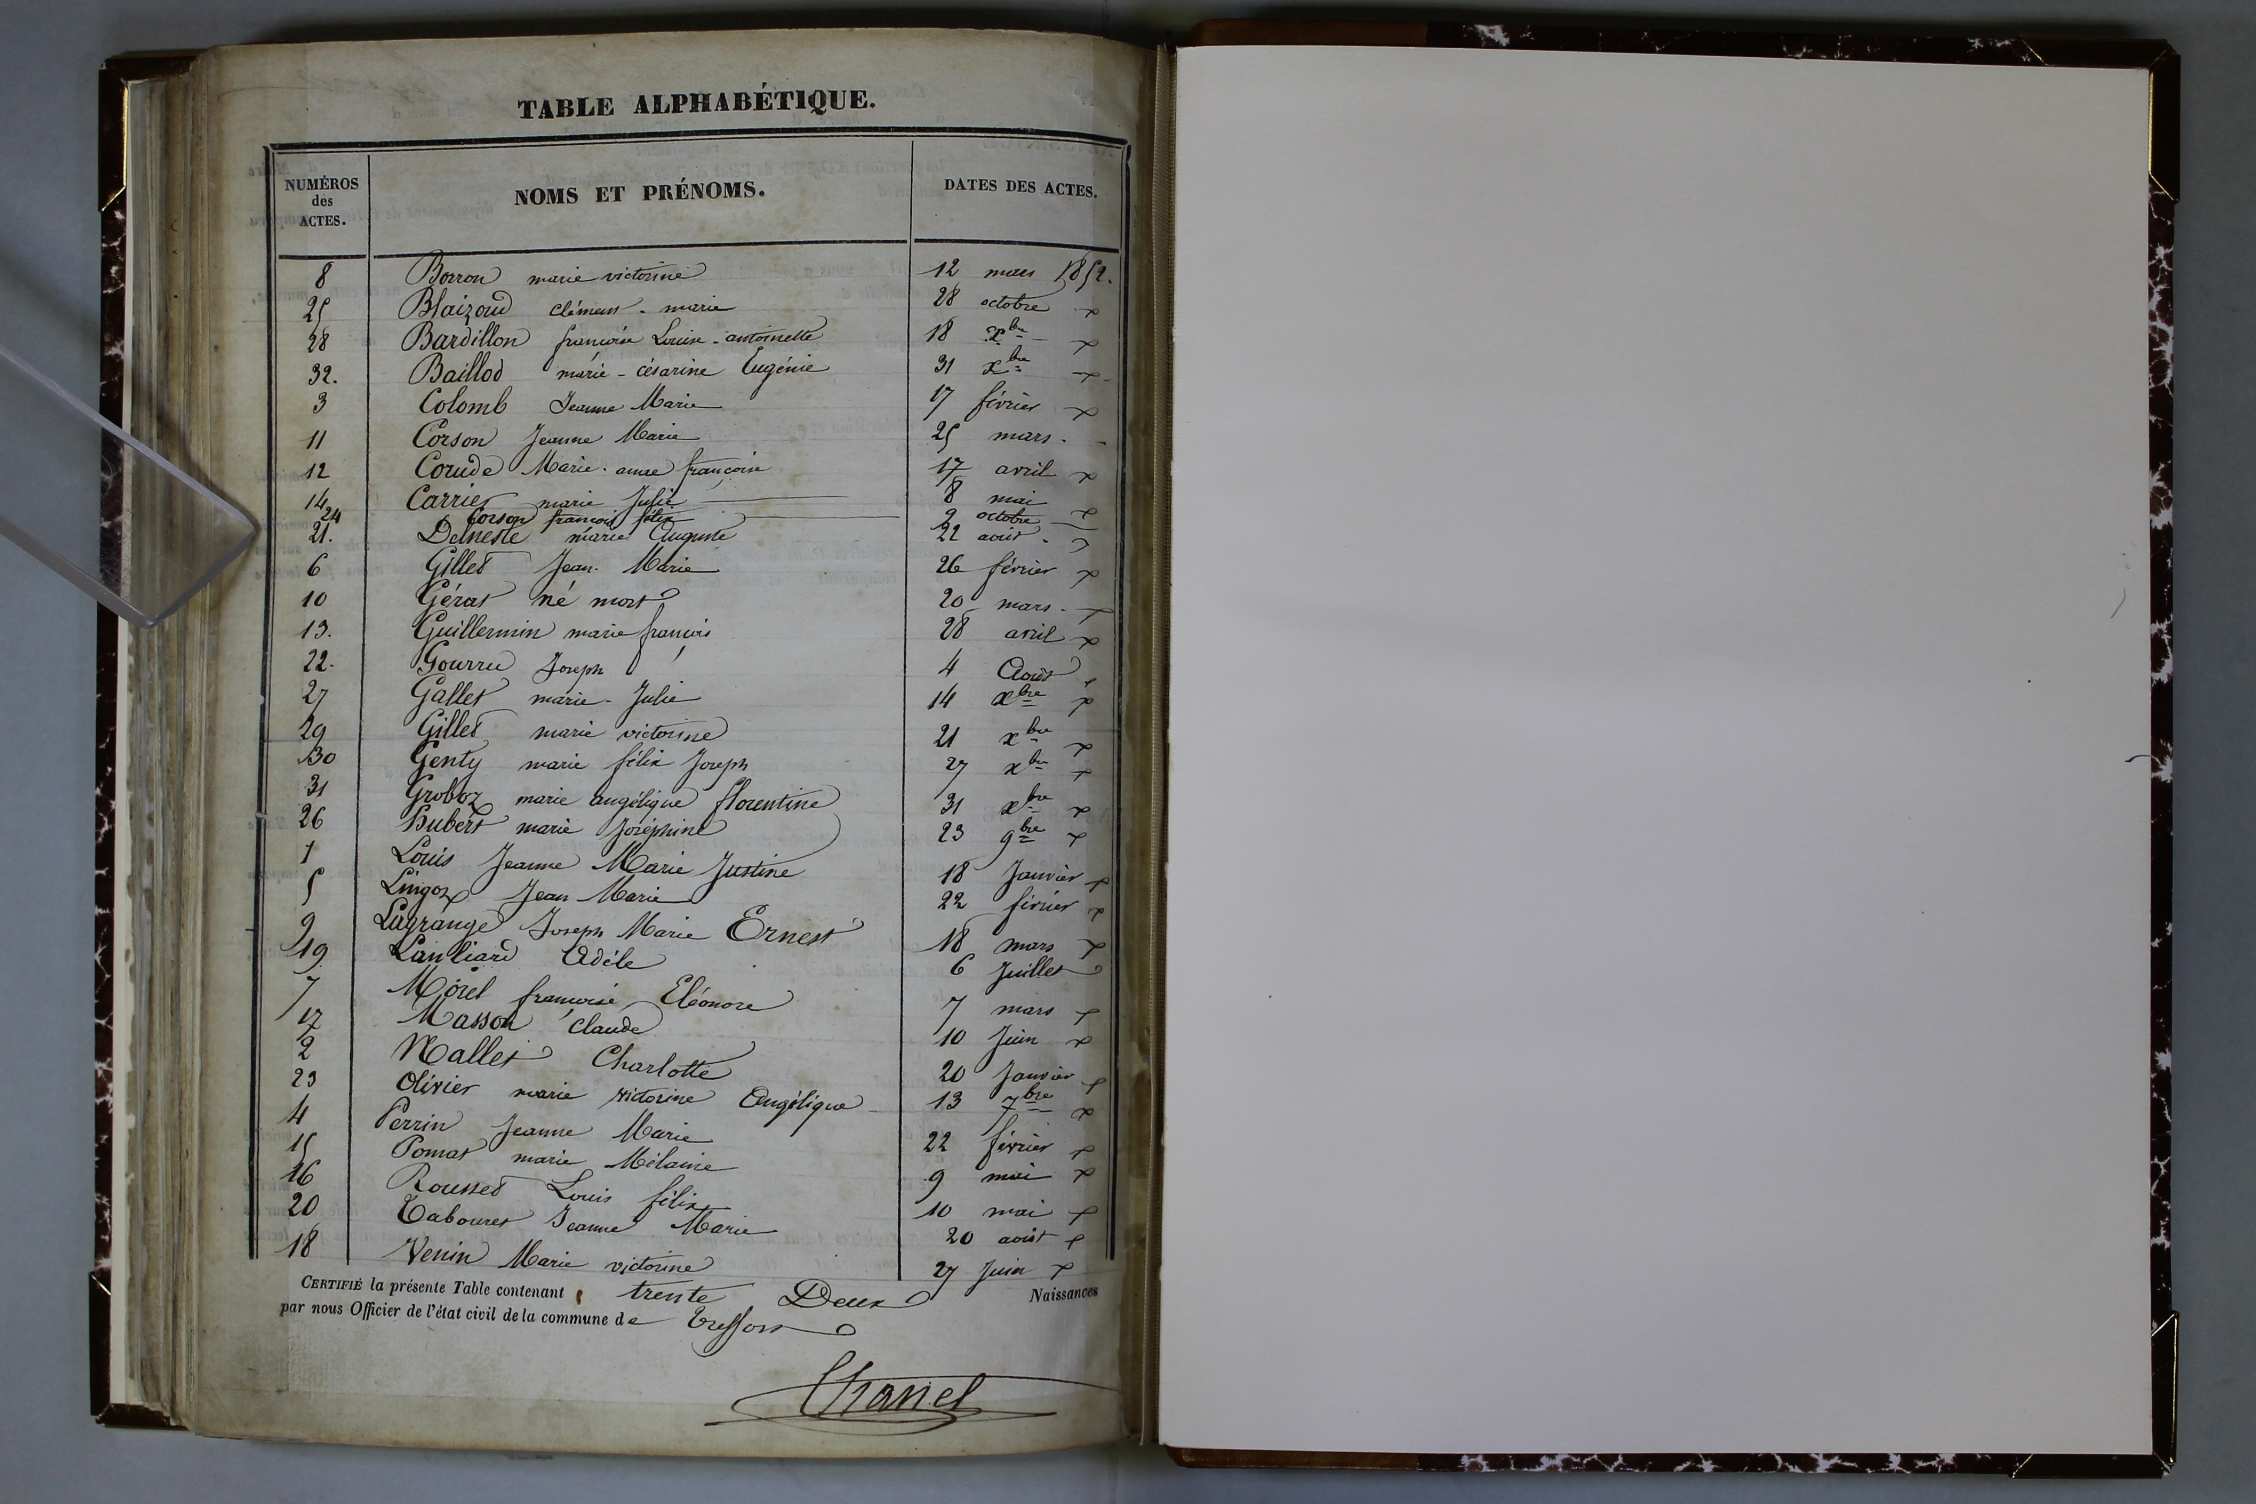 TABLE ALPHABÉTIQUE.
NUMÉROS des ACTES. NOMS ET PRÉNOMS. DATES DES ACTES.
8 Borron marie victorine 12 mars 1852.
25 Blaizoud clémens - marie 28 octobre
28 Bardillon francoise Louise - antoinette 18 Xbre
32. Baillod marie - césarine Eugénie 31 Xbre
3 Colomb Jeanne Marie 17 février
11 Corson Jeanne Marie 25 mars
12 Corude Marie - anne françoise 17 avril
14 Carrier marie Julie 8 mai
24 Corson françois félix 9 octobre
21. Delneste marie Auguste 22 août
6 Gillet Jean Marie 26 février
10 Gérat né mort 20 mars
13. Guillermin marie françois 28 avril
22. Gourru Joseph 4 Août
27 Gallet marie - Julie 14 Xbre
29 Gillet marie victorine 21 Xbre
30 Genty marie félix Joseph 27 Xbre
31 Groboz marie angélique florentine 31 Xbre
26 Hubert marie Joséphine 23 9bre
1 Louis Jeanne Marie Justine 18 Janvier
5 Lingoz Jean Marie 22 février
9 Lagrange Joseph Marie Ernest 18 mars
19 Adèle 6 Juillet
7 Morel françoise Eléonore 7 mars
17 Masson Claude 10 Juin
2 Nallet Charlotte 20 Janvier
23 Olivier marie victorine Angélique 13 7bre
4 Perrin Jeanne Marie 22 février
15 Pomat marie Mélanie 9 mai
16 Rousset Louis félix 10 mai
20 Tabouret Jeanne Marie 20 août
18 Venin Marie victorine 27 Juin
CERTIFIÉ la présente Table contenant trente Deux Naissances
par nous Officier de l'état civil de la commune de Treffort
Chanel